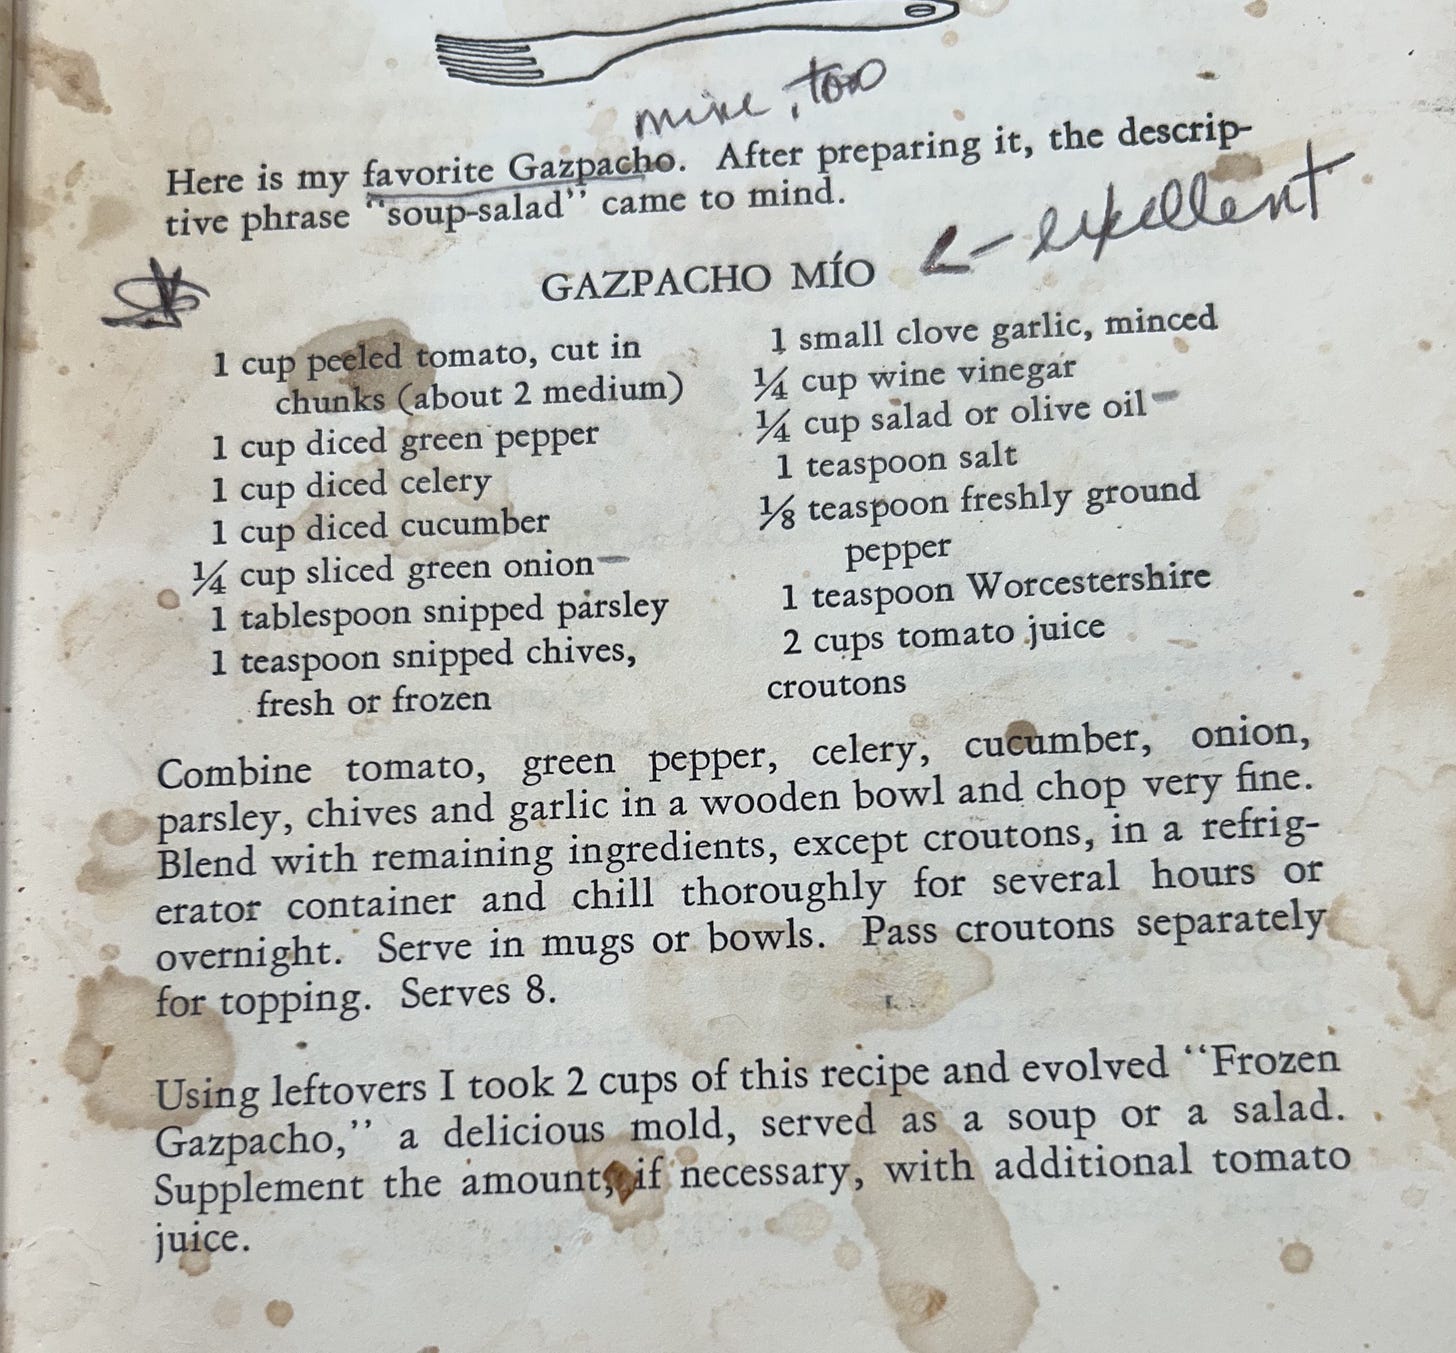 mine, too
Here is my favorite Gazpacho. After preparing it, the descrip-
tive phrase "soup-salad" came to mind.
← excellent
GAZPACHO MÍO
1 cup peeled tomato, cut in
chunks (about 2 medium)
1 cup diced green pepper
1 cup diced celery
1 cup diced cucumber
¼ cup sliced green onion
1 tablespoon snipped parsley
1 teaspoon snipped chives,
fresh or frozen
1 small clove garlic, minced
¼ cup wine vinegar
¼ cup salad or olive oil
1 teaspoon salt
⅛ teaspoon freshly ground
pepper
1 teaspoon Worcestershire
2 cups tomato juice
croutons
Combine tomato, green pepper, celery, cucumber, onion,
parsley, chives and garlic in a wooden bowl and chop very fine.
Blend with remaining ingredients, except croutons, in a refrig-
erator container and chill thoroughly for several hours or
overnight. Serve in mugs or bowls. Pass croutons separately
for topping. Serves 8.
Using leftovers I took 2 cups of this recipe and evolved "Frozen
Gazpacho," a delicious mold, served as a soup or a salad.
Supplement the amount, if necessary, with additional tomato
juice.